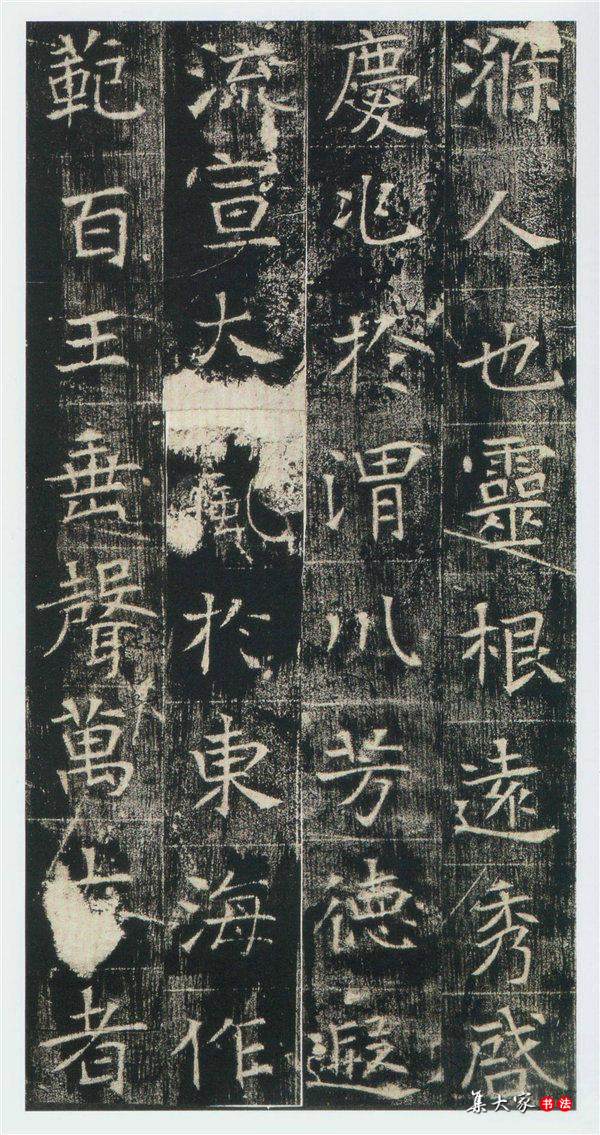 滌人也靈根遠秀啓
慶兆於渭川芳德遐
流宣大風於東海作
範百王垂聲萬古者
集大家书法